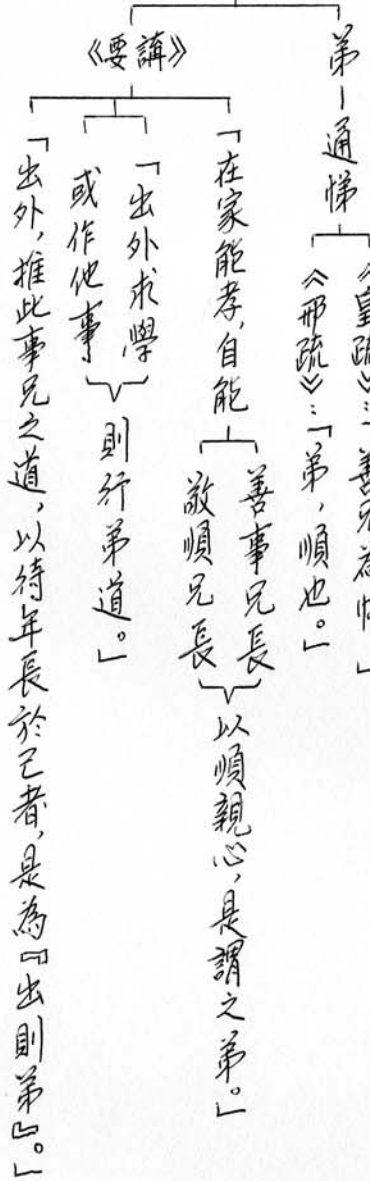 弟－通悌
《皇疏》：「善兄為悌」
《邢疏》：「弟，順也。」
《要講》
「在家能孝，自能
善事兄長
敬順兄長
以順親心，是謂之弟。」
「出外求學
或作他事
則行弟道。」
「出外，推此事兄之道，以待年長於己者，是為『出則弟』。」